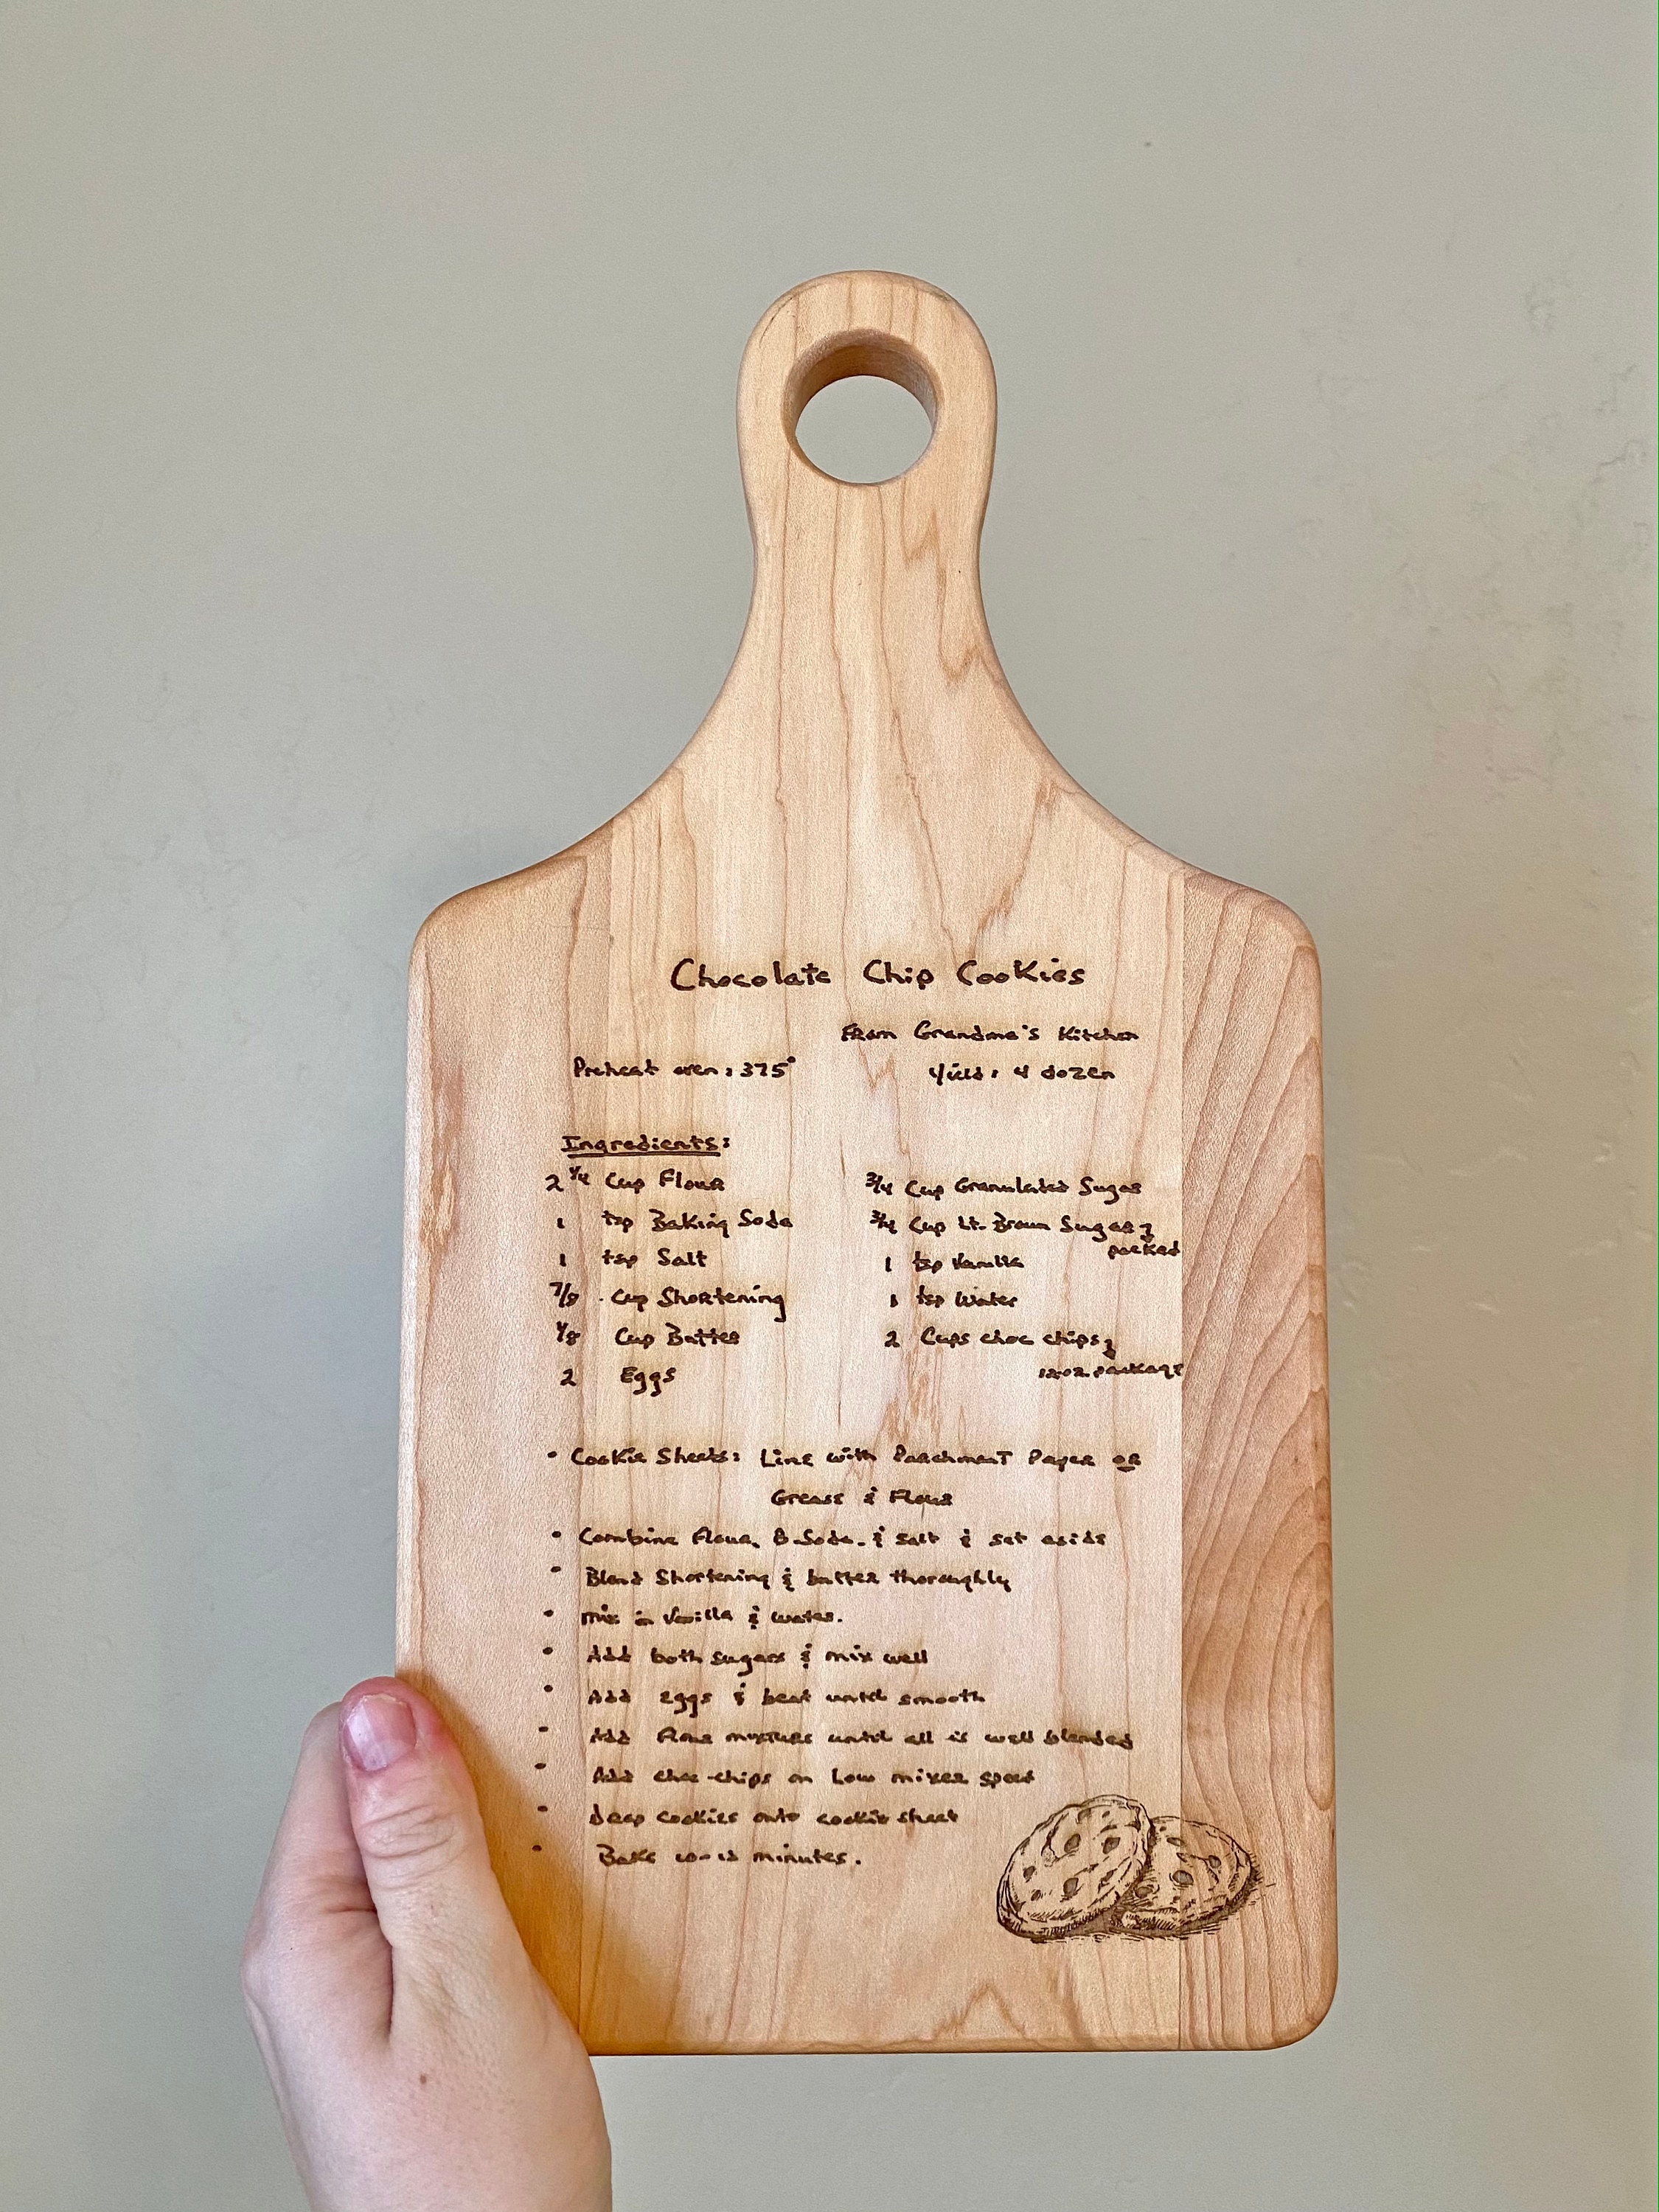 Chocolate Chip Cookies
From Grandma's Kitchen
Preheat oven: 375°
Yield: 4 dozen
Ingredients:
2 1/4 Cup Flour
1 tsp Baking Soda
1 tsp Salt
7/8 Cup Shortening
1/8 Cup Butter
2 Eggs
3/4 Cup Granulated Sugar
3/4 Cup Lt. Brown Sugar,
packed
1 tsp Vanilla
1 tsp Water
2 Cups choc chips,
12 oz. package
• Cookie Sheets: Line with Parchment Paper or
Grease & Flour
• Combine Flour, B. Soda. & Salt & set aside
• Blend Shortening & butter thoroughly
• Mix in Vanilla & water.
• Add both sugars & mix well
• Add eggs & beat until smooth
• Add Flour mixture until all is well blended
• Add choc chips on Low mixer speed
• Drop cookies onto cookie sheet
• Bake 10-12 minutes.